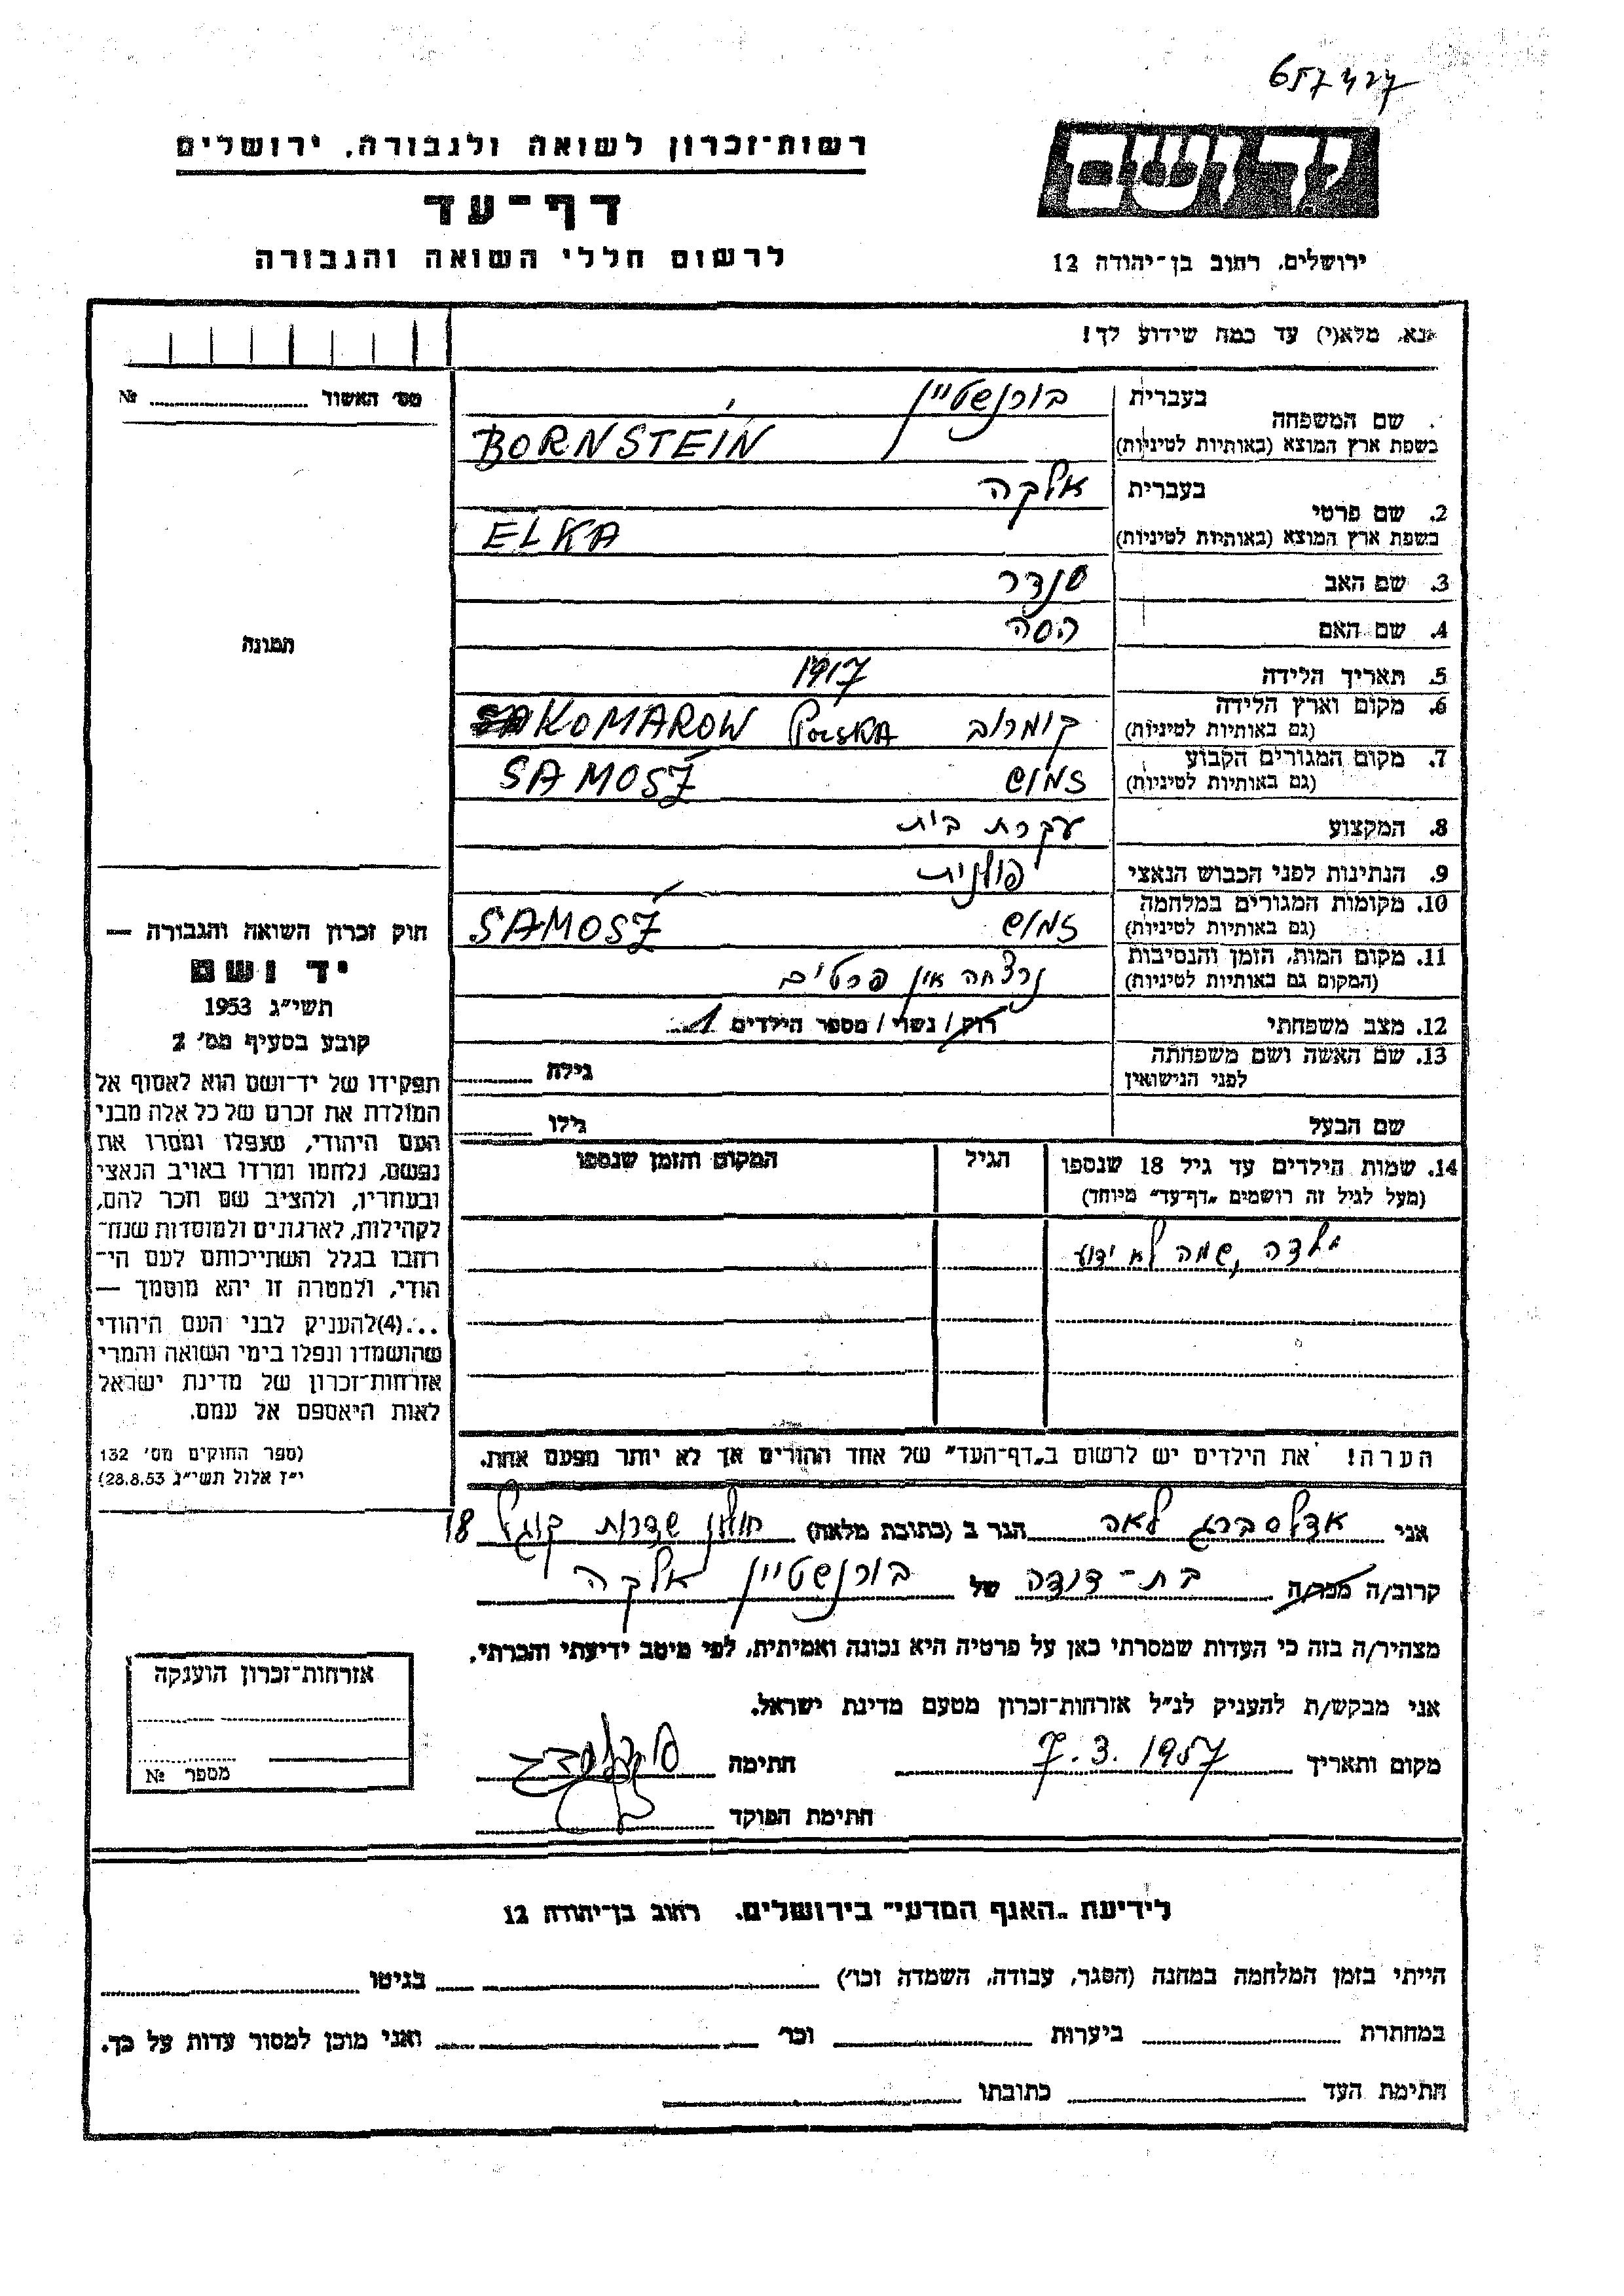 657427
יד ושם
ירושלים. רחוב בן־יהודה 12
רשות־זכרון לשואה ולגבורה. ירושלים
דף־עד
לרשום חללי השואה והגבורה
נא, מלא(י) עד כמה שידוע לך!
מס׳ האשור № ........
שם המשפחה
בעברית
בורנשטיין
בשפת ארץ המוצא (באותיות לטיניות)
BORNSTEIN
2. שם פרטי
בעברית
אלקה
בשפת ארץ המוצא (באותיות לטיניות)
ELKA
3. שם האב
סנדר
4. שם האם
הסה
תמונה
5. תאריך הלידה
1917
6. מקום וארץ הלידה
(גם באותיות לטיניות)
קומרוב POLSKA KOMAROW
7. מקום המגורים הקבוע
(גם באותיות לטיניות)
זמוש SAMOSZ
8. המקצוע
עקרת בית
9. הנתינות לפני הכבוש הנאצי
פולנית
10. מקומות המגורים במלחמה
(גם באותיות לטיניות)
זמוש SAMOSZ
11. מקום המות, הזמן והנסיבות
(המקום גם באותיות לטיניות)
נרצחה אין פרטים
12. מצב משפחתי
רוק/נשוי/מספר הילדים 1
13. שם האשה ושם משפחתה
לפני הנישואין
גילה ........
שם הבעל
גילו ........
14. שמות הילדים עד גיל 18 שנספו
(מעל לגיל זה רושמים „דף־עד” מיוחד)
הגיל
המקום והזמן שנספו
ילדה, שמה לא ידוע
הערה! את הילדים יש לרשום ב„דף־העד” של אחד ההורים אך לא יותר מפעם אחת.
חוק זכרון השואה והגבורה —
יד ושם
תשי״ג 1953
קובע בסעיף מס׳ 2
תפקידו של יד־ושם הוא לאסוף אל
המולדת את זכרם של כל אלה מבני
העם היהודי, שנפלו ומסרו את
נפשם, נלחמו ומרדו באויב הנאצי
ובעוזריו, ולהציב שם וזכר להם,
לקהילות, לארגונים ולמוסדות שנח־
רבו בגלל השתייכותם לעם הי־
הודי, ולמטרה זו יהא מוסמך —
...(4)להעניק לבני העם היהודי
שהושמדו ונפלו בימי השואה והמרי
אזרחות־זכרון של מדינת ישראל
לאות היאספם אל עמם.
(ספר החוקים מס׳ 132
י״ז אלול תשי״ג 28.8.53)
אני אדלסברג לאה הגר ב (כתובת מלאה) חולון שדרות קוגל 18
קרוב/ה מכר/ה בת-דודה של בורנשטיין אלקה
מצהיר/ה בזה כי העדות שמסרתי כאן על פרטיה היא נכונה ואמיתית, לפי מיטב ידיעתי והכרתי.
אני מבקש/ת להעניק לנ״ל אזרחות־זכרון מטעם מדינת ישראל.
מקום ותאריך 7.3.1957 חתימה
חתימת הפוקד
אזרחות־זכרון הוענקה
מספר №
לידיעת „האגף המדעי” בירושלים. רחוב בן־יהודה 12
הייתי בזמן המלחמה במחנה (הסגר, עבודה, השמדה וכו׳) ........ בגיטו ........
במחתרת ........ ביערות ........ וכו׳ ........ ואני מוכן למסור עדות על כך.
חתימת העד ........ כתובתו ........